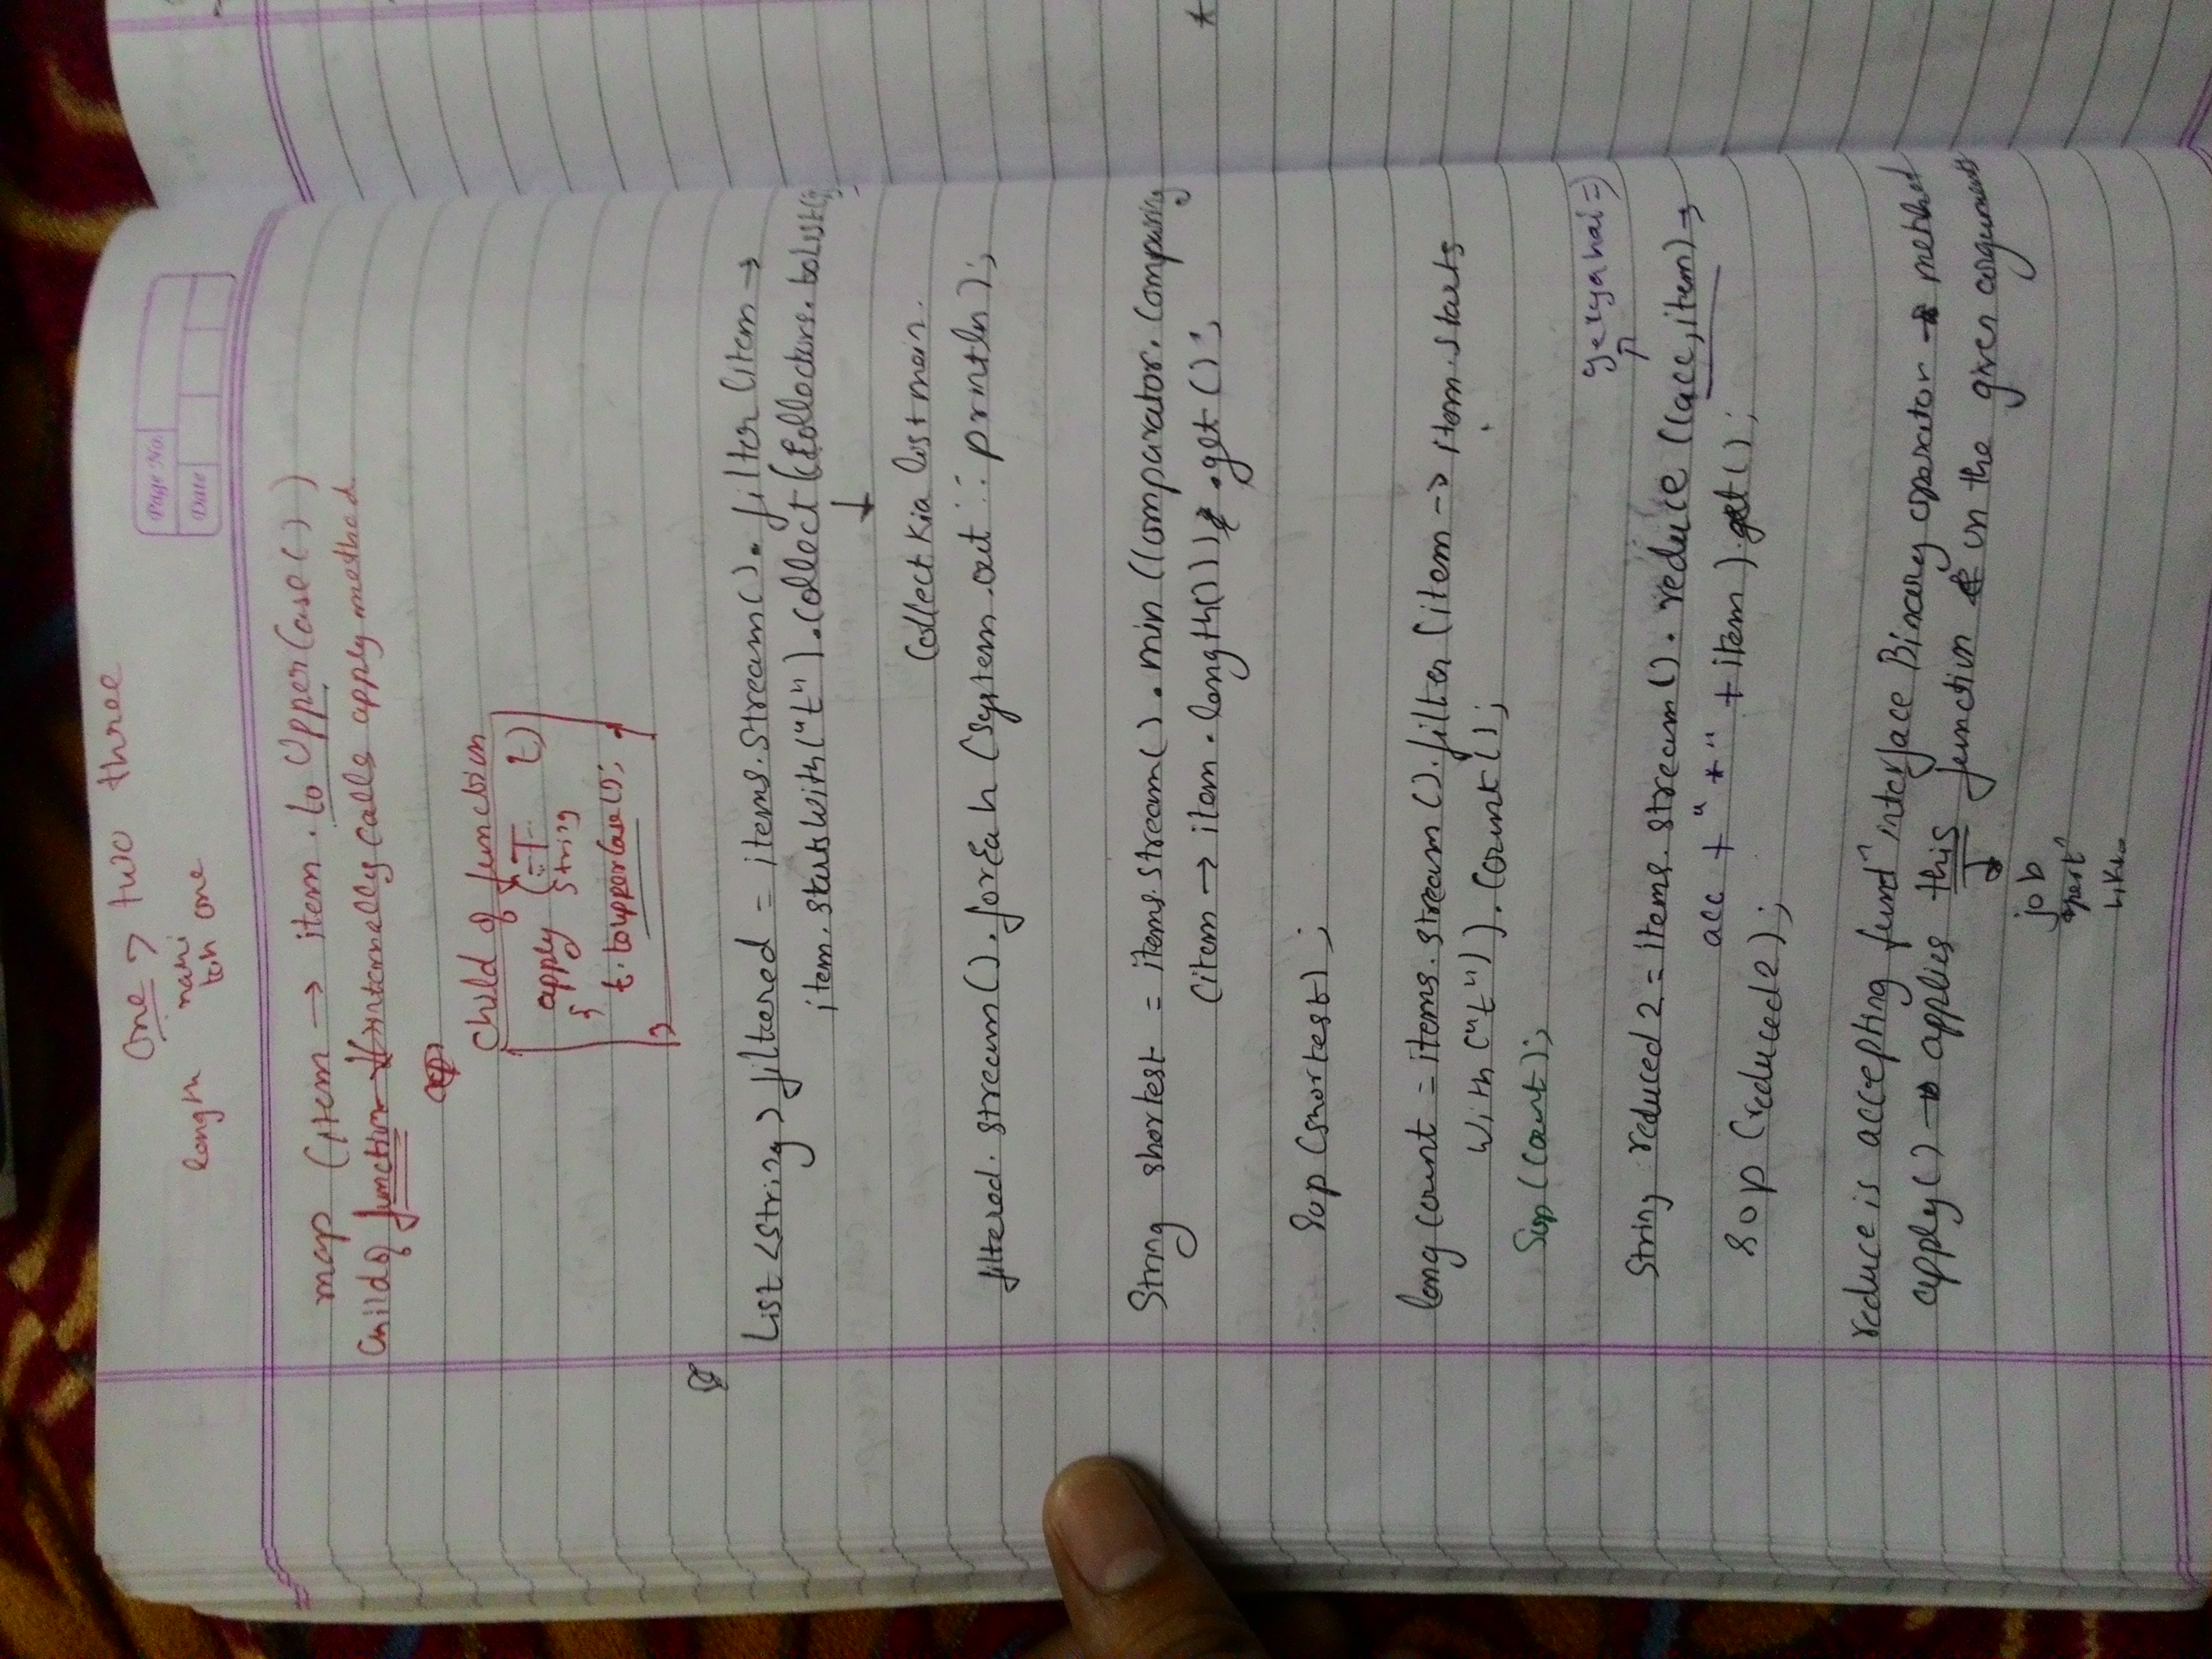 one > two three
length nahi
toh one
Page No.
Date
map (item → item.toUpperCase())
Child of function internally calls apply method
child of function
apply (T t)
String
{
t.toupperCase();
}
List <String> filtered = items.stream().filter (item →
item.startsWith("t").collect (Collectors.toList()
↓
Collect kia list mein.
filtered.stream().forEah (System.out :: println);
String shortest = items.stream().min ((comparator.comparing
(item → item.length())).get();
Sop (shortest);
long count = items.stream().filter (item → item.starts
With ("t")).count();
Sop (count);
ye kya hai =)
String reduced2 = items.stream().reduce ((acc, item) →
acc + "*" + item).get();
Sop (reduced2);
reduce is accepting funcⁿ interface Binary operator → method
apply() → applies this function on the given arguments
↓
job
operⁿ
like